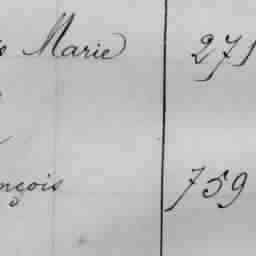 Marie 271
nçois 759